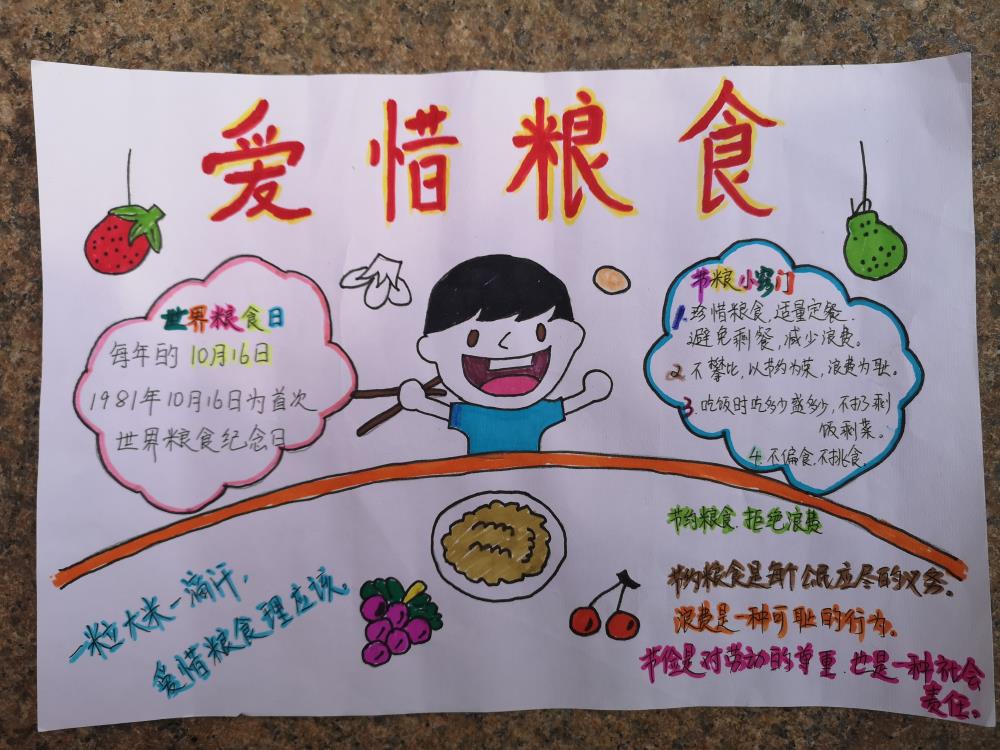 爱惜粮食
世界粮食日
每年的10月16日
1981年10月16日为首次
世界粮食纪念日
节粮小窍门
1.珍惜粮食,适量定餐.
避免剩餐,减少浪费。
2.不攀比,以节约为荣,浪费为耻。
3.吃饭时吃多少盛多少,不扔剩
饭剩菜。
4.不偏食.不挑食.
一粒大米一滴汗,
爱惜粮食理应该
节约粮食.拒绝浪费
节约粮食是每个公民应尽的义务。
浪费是一种可耻的行为.
节俭是对劳动的尊重.也是一种社会
责任。